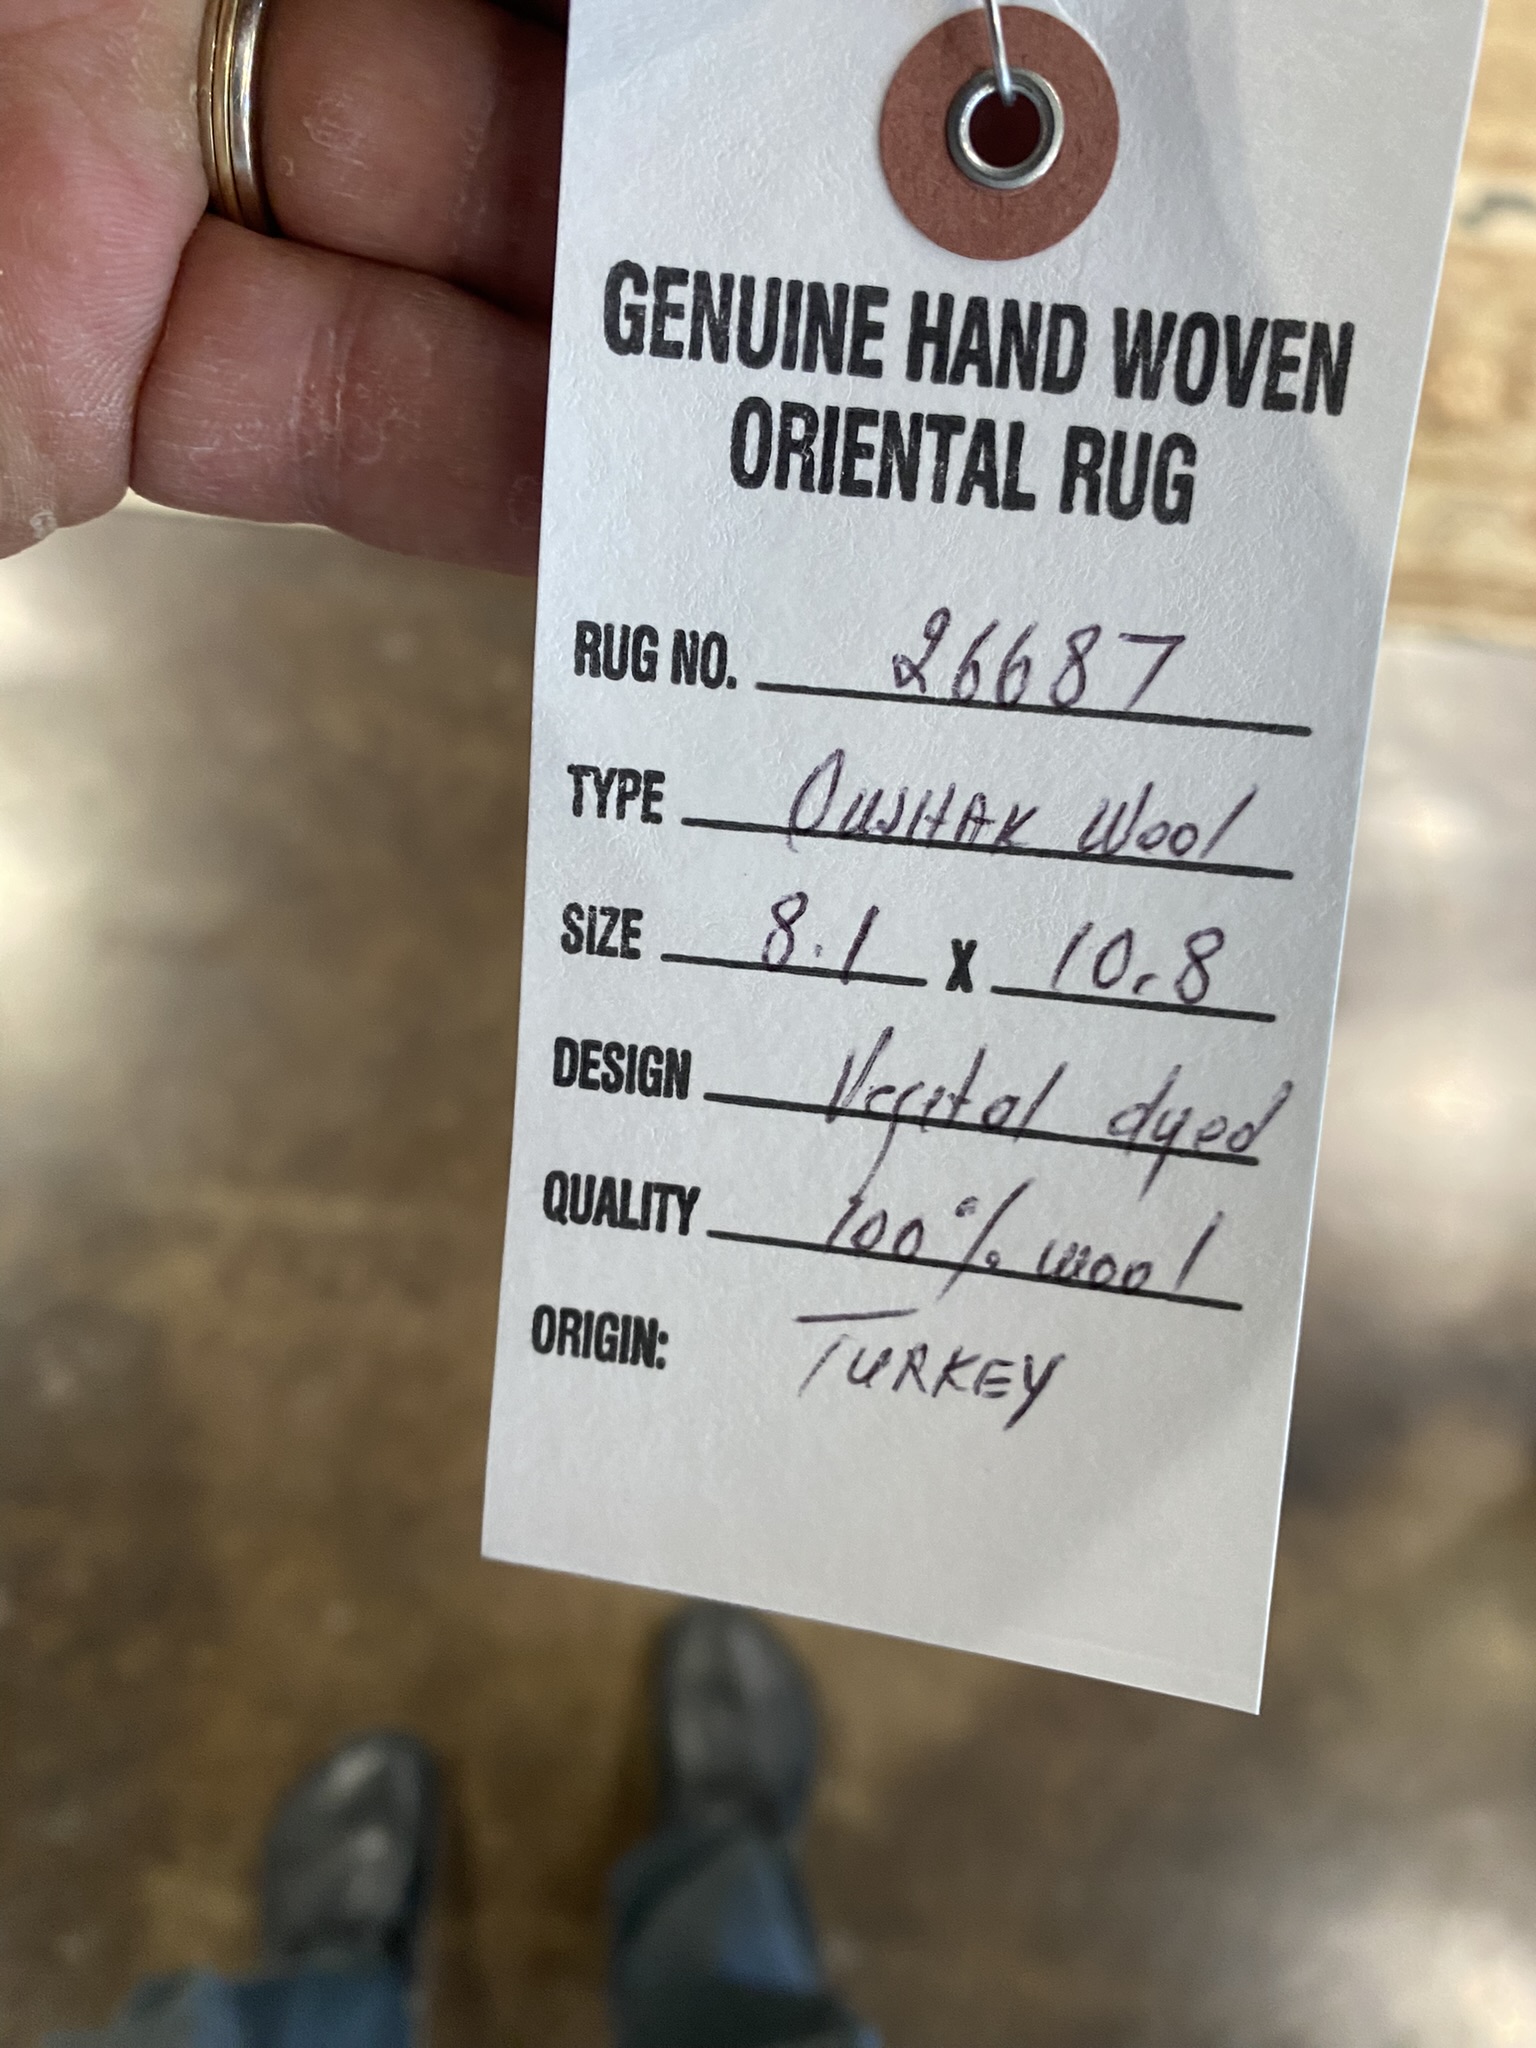 GENUINE HAND WOVEN
ORIENTAL RUG
RUG NO. 26687
TYPE OUSHAK Wool
SIZE 8.1 X 10.8
DESIGN Vegital dyed
QUALITY 100% wool
ORIGIN: TURKEY